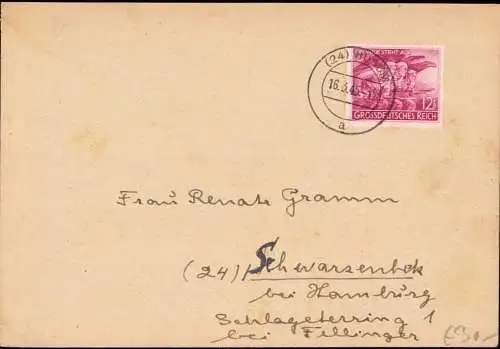 EIN VOLK STEHT AUF
(24)
16.3.45
12
GROSSDEUTSCHES REICH
a
Frau Renate Gramm
(24) Schwarzenbek
bei Hamburg
Schlageterring 1
bei Fellinger